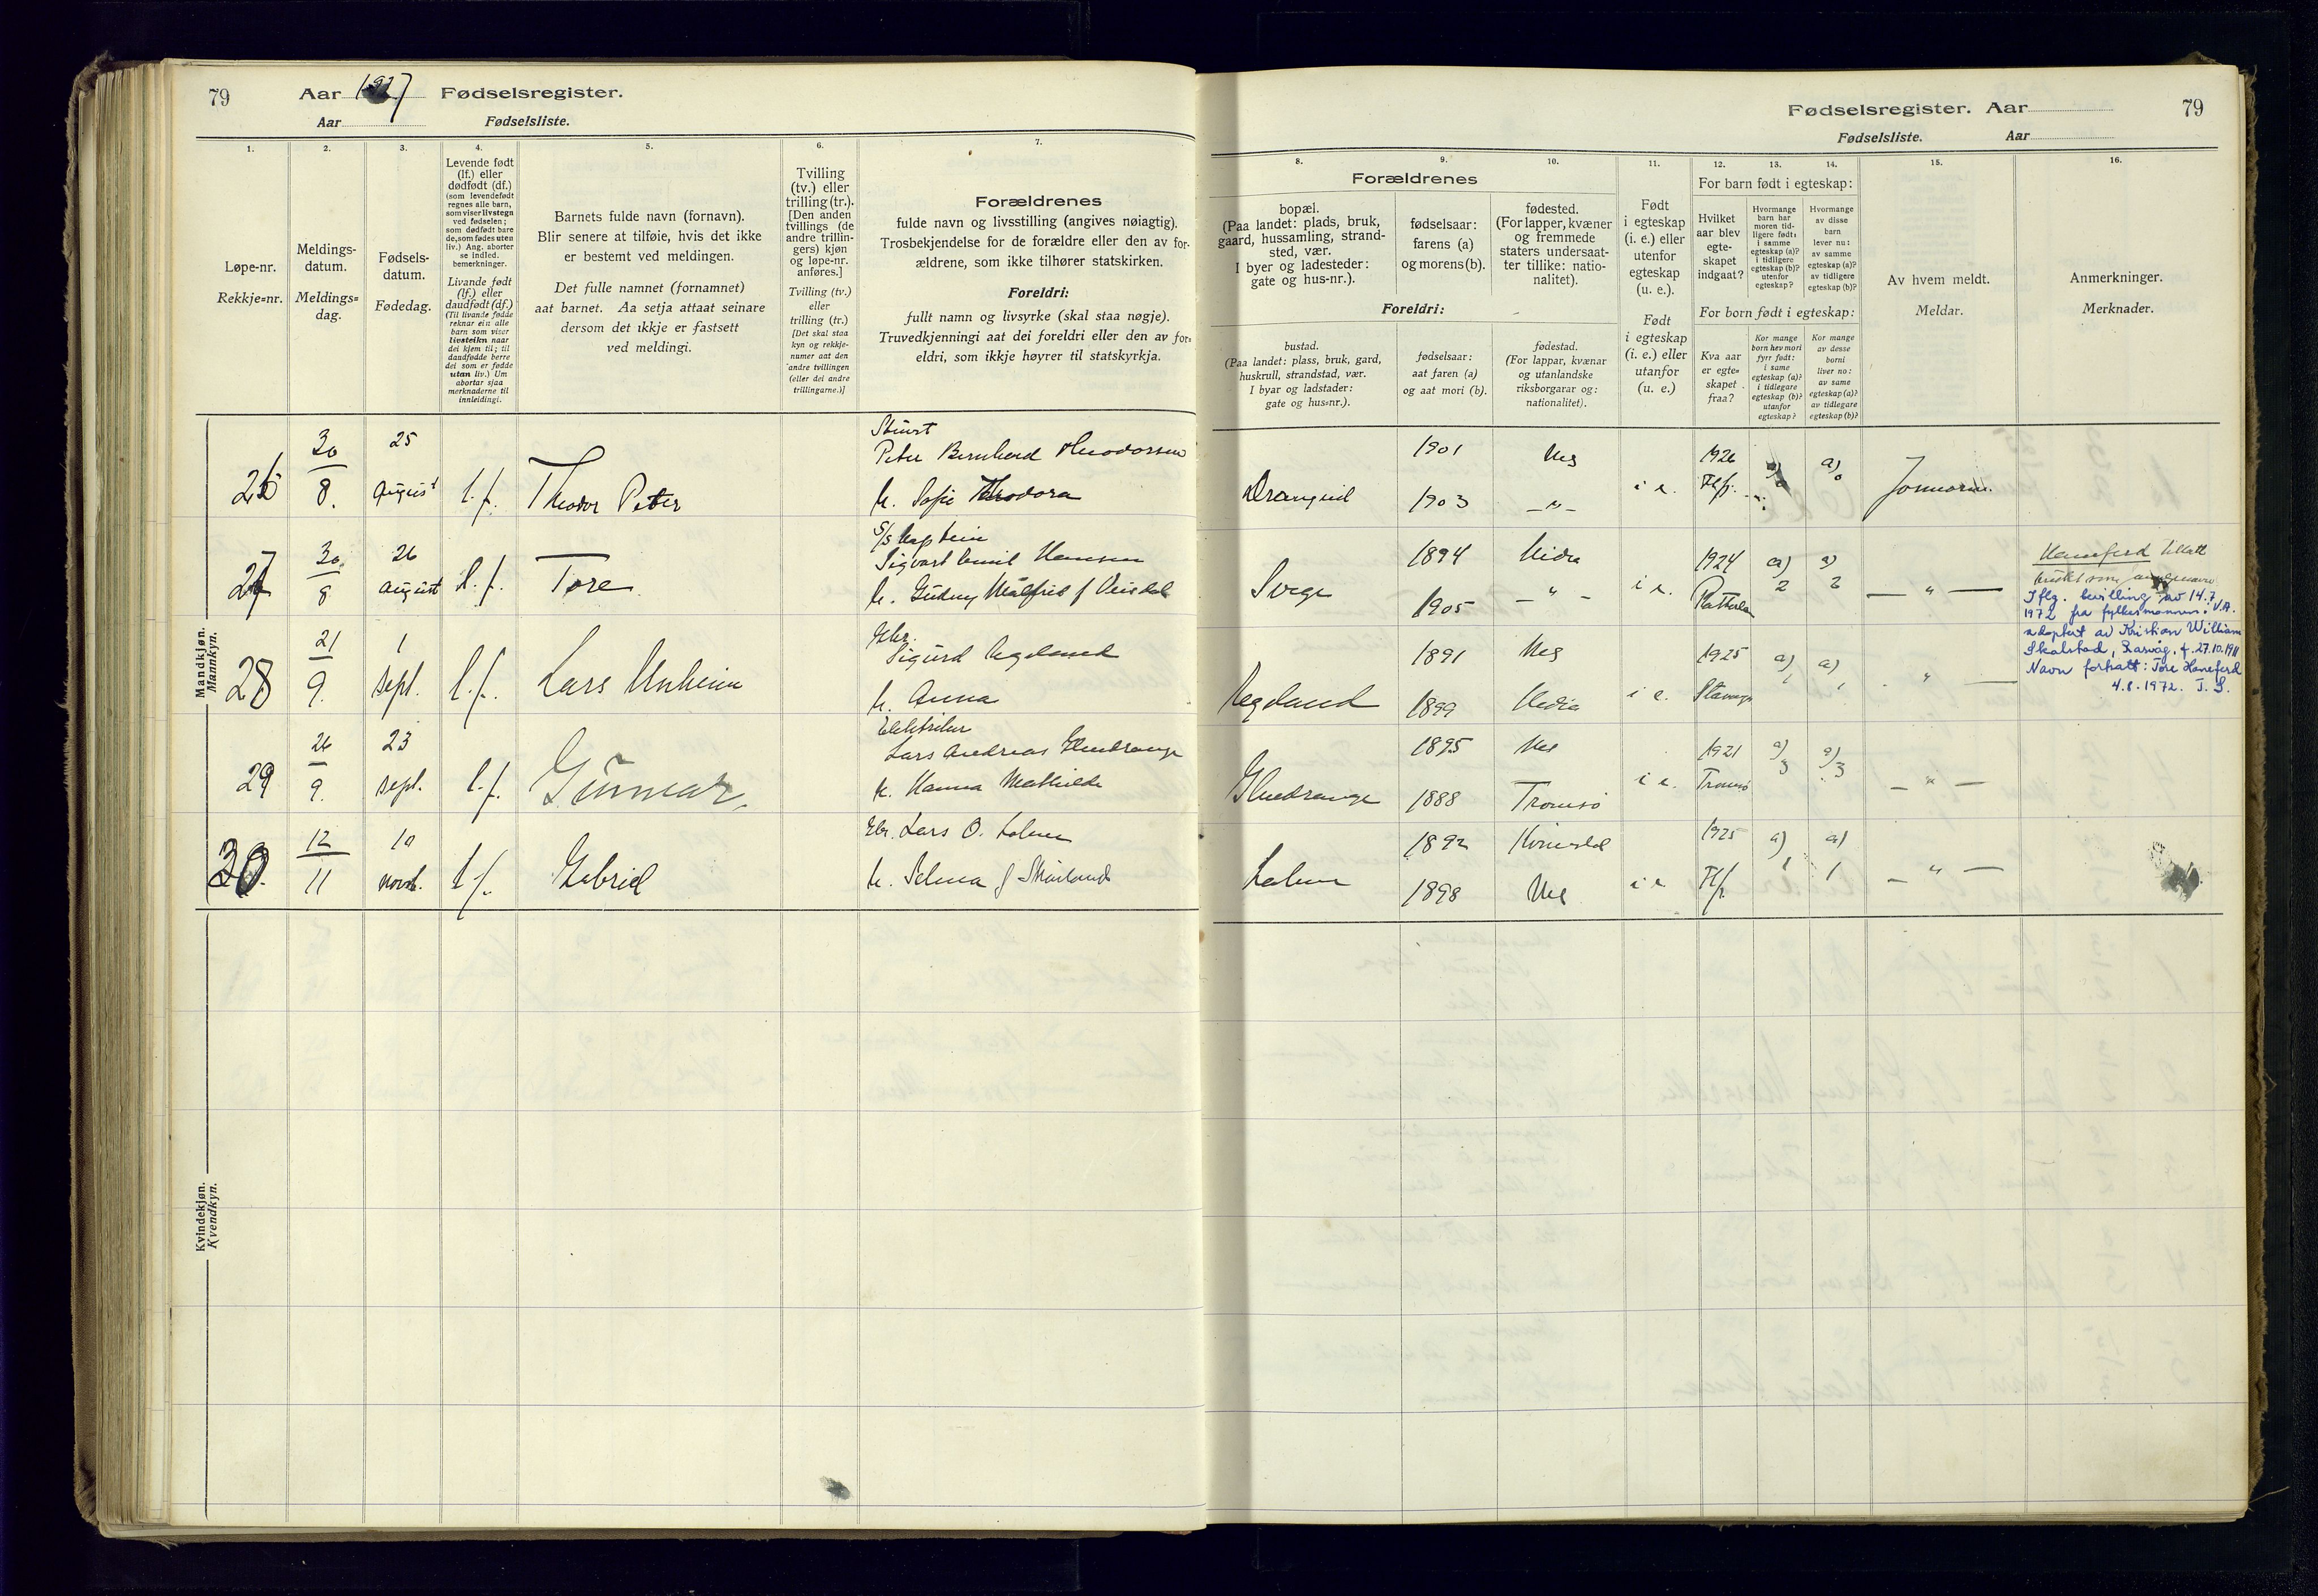 79
Aar 1927 Fødselsregister.
Aar Fødselsliste.
1.
2.
3.
4.
5.
6.
7.
Løpe-nr.
Rekkje=nr.
Meldings-
datum.
Meldings=
dag.
Fødsels-
datum.
Fødedag.
Levende født
(lf.) eller
dødfødt (df.)
(som levendefødt
regnes alle barn,
som viser livstegn
ved fødselen;
som dødfødt bare
de, som fødes uten
liv.) Ang. aborter
se indled.
bemerkninger.
Livande født
(lf.) eller
daudfødt (df.)
(Til livande fødde
reknar ein alle
barn som viser
livsteikn naar
dei kjem til; til
daudfødde berre
dei som er fødde
utan liv.) Um
abortar sjaa
merknaderne til
innleidingi.
Barnets fulde navn (fornavn).
Blir senere at tilføie, hvis det ikke
er bestemt ved meldingen.
Det fulle namnet (fornamnet)
aat barnet. Aa setja attaat seinare
dersom det ikkje er fastsett
ved meldingi.
Tvilling
(tv.) eller
trilling (tr.).
[Den anden
tvillings (de
andre trillin-
gers) kjøn
og løpe-nr.
anføres.]
Tvilling (tv.)
eller
trilling (tr.)
[Det skal staa
kyn og rekkje-
numer aat den
andre tvillingen
(eller dei andre
trillingarne.)]
Forældrenes
fulde navn og livsstilling (angives nøiagtig).
Trosbekjendelse for de forældre eller den av for-
ældrene, som ikke tilhører statskirken.
Foreldri:
fullt namn og livsyrke (skal staa nøgje).
Truvedkjenningi aat dei foreldri eller den av for-
eldri, som ikkje høyrer til statskyrkja.
Mandkjøn.
Mannkyn.
26
30
8.
25
August
l. f.
Theodor Peter
Stuert
Peter Bernhard Theodorsen
h. Sofie Theodora
27
30
8
26
August
l. f.
Tore
S/s kaptein
Sigvart Emil Hansen
h. Gudny Målfrid f
28
21
9.
1
sept.
l. f.
Lars Unheim
Gbr.
Sigurd Aegeland
h. Anna
29
26
9.
23
sept.
l. f.
Gunnar
Elektriker
Lars Andreas
h. Hanna Mathilde
30.
12
11
10
novbr.
l. f.
Gabriel
Gbr. Lars O.
h. Selma f
Kvindekjøn.
Kvendkyn.
Fødselsregister. Aar 79
Fødselsliste. Aar
8.
9.
10.
11.
12.
13.
14.
15.
16.
Forældrenes
bopæl.
(Paa landet: plads, bruk,
gaard, hussamling, strand-
sted, vær.
I byer og ladesteder:
gate og hus-nr.).
fødselsaar:
farens (a)
og morens (b).
fødested.
(For lapper, kvæner
og fremmede
staters undersaat-
ter tillike: natio-
nalitet).
Foreldri:
bustad.
(Paa landet: plass, bruk, gard,
huskrull, strandstad, vær.
I byar og ladstader:
gate og hus=nr.).
fødselsaar:
aat faren (a)
og aat mori (b).
fødestad.
(For lappar, kvænar
og utanlandske
riksborgarar og:
nationalitet).
Født
i egteskap
(i. e.) eller
utenfor
egteskap
(u. e.).
Født
i egteskap
(i. e.) eller
utanfor
(u. e.)
For barn født i egteskap:
Hvilket
aar blev
egte-
skapet
indgaat?
Hvormange
barn har
moren tid-
ligere født:
i samme
egteskap (a)?
i tidligere
egteskap (b)?
utenfor
egteskap?
Hvormange
av disse
barn
lever nu:
av samme
egteskap (a)?
av tidligere
egteskap (b)?
For born født i egteskap:
Kva aar
er egte=
skapet
fraa?
Kor mange
born hev mori
fyrr født:
i same
egteskap (a)?
i tidlegare
egteskap (b)?
utanfor
egteskap?
Kor mange
av desse
borni
liver no:
av same
egteskap (a)?
av tidlegare
egteskap (b)?
Av hvem meldt.
Meldar.
Anmerkninger.
Merknader.
1901
1903
Nes
— " —
i e.
1926
a)
0
Jonmoren.
1894
1905
Hidra
— " —
i e.
1924
a)
2
a)
2
— " —
Haneferd tillatt
brukt som
Iflg. bevilling av 14.7.
1972 fra fylkesmannen i V.A.
adoptert av Kristian William
Skalstad, Rasvåg, f. 27.10.1911
Navn fortsatt: Tore Haneferd
4.8.1972. T. S.
Aegeland
1891
1899
Nes
Hidra
i e.
1925
a)
1
a)
1
" —
1895
1888
Nes
Tromsø
i e.
1921
Tromsø
a)
3
a)
3
— " —
1892
1898
Nes
i e.
1925
a)
1
a)
1
— " —